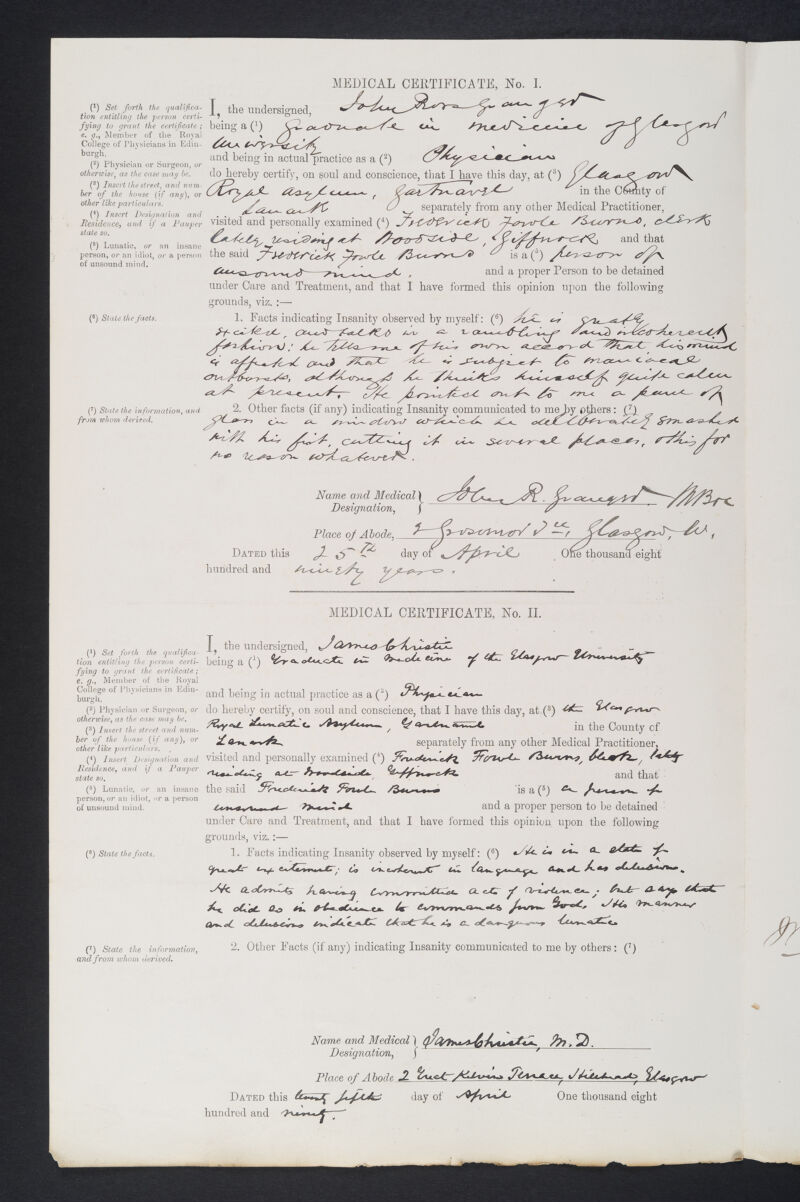 MEDICAL CERTIFICATE, No. I.
(¹) Set forth the qualifica-
tion entitling the person certi-
fying to grant the certificate;
e. g., Member of the Royal
College of Physicians in Edin-
burgh.
(²) Physician or Surgeon, or
otherwise, as the case may be.
(³) Insert the street, and num-
ber of the house (if any), or
other like particulars.
(⁴) Insert Designation and
Residence, and if a Pauper
state so.
(⁵) Lunatic, or an insane
person, or an idiot, or a person
of unsound mind.
I, the undersigned, John Ross
being a (¹) graduate in medicine of Glasgow
University
and being in actual practice as a (²) Physician
do hereby certify, on soul and conscience, that I have this day, at (³) Glasgow
Royal asylum, Gartnavel in the County of
Lanark separately from any other Medical Practitioner,
visited and personally examined (⁴) Frederick Fowle Burns, clerk
lately residing at Woodside, Giffnock and that
the said Frederick Fowle Burns is a (⁵) person of
unsound mind. and a proper Person to be detained
under Care and Treatment, and that I have formed this opinion upon the following
grounds, viz. :—
(⁶) State the facts.
1. Facts indicating Insanity observed by myself: (⁶) he is greatly
excited, and talks in a rambling and incoherent
fashion: he tells me of his own accord that his mind
is affected and that he is subject to maniacal
outbursts, although he thinks himself quite calm
at present. He pointed out to me a pane of
(⁷) State the information, and
from whom derived.
2. Other facts (if any) indicating Insanity communicated to me by others: (⁷)
glass in a window which he deliberately smashed
with his fist, cutting it in several places, & this for
no reason whatever.
Name and Medical
Designation, John R.
Place of Abode, 2 Grosvenor Glasgow, W.
DATED this 25th day of April One thousand eight
hundred and ninety years.
MEDICAL CERTIFICATE, No. II.
(¹) Set forth the qualifica-
tion entitling the person certi-
fying to grant the certificate;
e. g., Member of the Royal
College of Physicians in Edin-
burgh.
(²) Physician or Surgeon, or
otherwise, as the case may be.
(³) Insert the street and num-
ber of the house (if any), or
other like particulars.
(⁴) Insert Designation and
Residence, and if a Pauper
state so.
(⁵) Lunatic, or an insane
person, or an idiot, or a person
of unsound mind.
I, the undersigned, James Christie
being a (¹) Graduate in Medicine of the Glasgow University
and being in actual practice as a (²) Physician
do hereby certify, on soul and conscience, that I have this day, at (³) the Glasgow
Royal Lunatic Asylum, Gartnavel in the County of
Lanark separately from any other Medical Practitioner,
visited and personally examined (⁴) Frederick Fowle Burns, Clerk, lately
residing at Woodside, Giffnock and that
the said Frederick Fowle Burns is a (⁵) a person of
unsound mind and a proper person to be detained
under Care and Treatment, and that I have formed this opinion upon the following
grounds, viz. :—
(⁶) State the facts.
1. Facts indicating Insanity observed by myself: (⁶) He is in a state of
great excitement; is incoherent in language and has delusions.
He admits having committed acts of violence; but says that
he did so in obedience to commands from God. His manner
and delusions indicate that he is a dangerous lunatic
(⁷) State the information,
and from whom derived.
2. Other Facts (if any) indicating Insanity communicated to me by others: (⁷)
Name and Medical
Designation, James Christie, M.D.
Place of Abode 2 Great Kelvin Terrace, Hillhead, Glasgow
DATED this twenty fifth day of April One thousand eight
hundred and ninety.